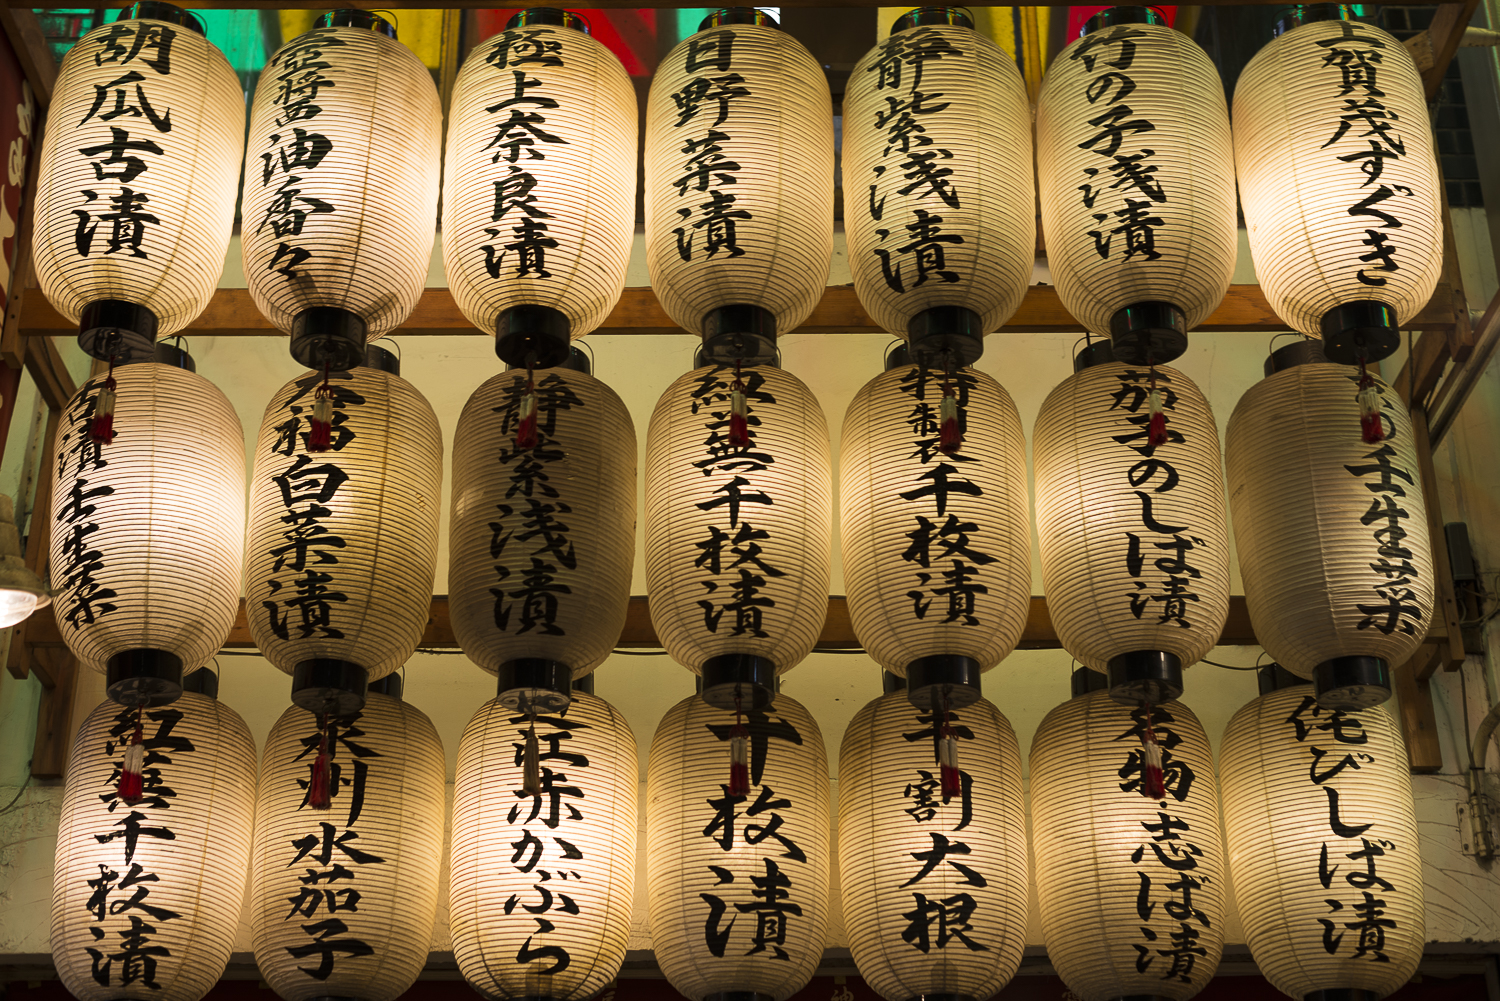 胡瓜古漬
壺醬油香々
極上奈良漬
日野菜漬
静紫浅漬
竹の子浅漬
上賀茂すぐき
古漬壬生菜
大福白菜漬
静紫浅漬
紅蕪千枚漬
特製千枚漬
茄子のしば漬
壬生菜
紅蕪千枚漬
泉州水茄子
近江赤かぶら
千枚漬
半割大根
名物・志ば漬
侘びしば漬